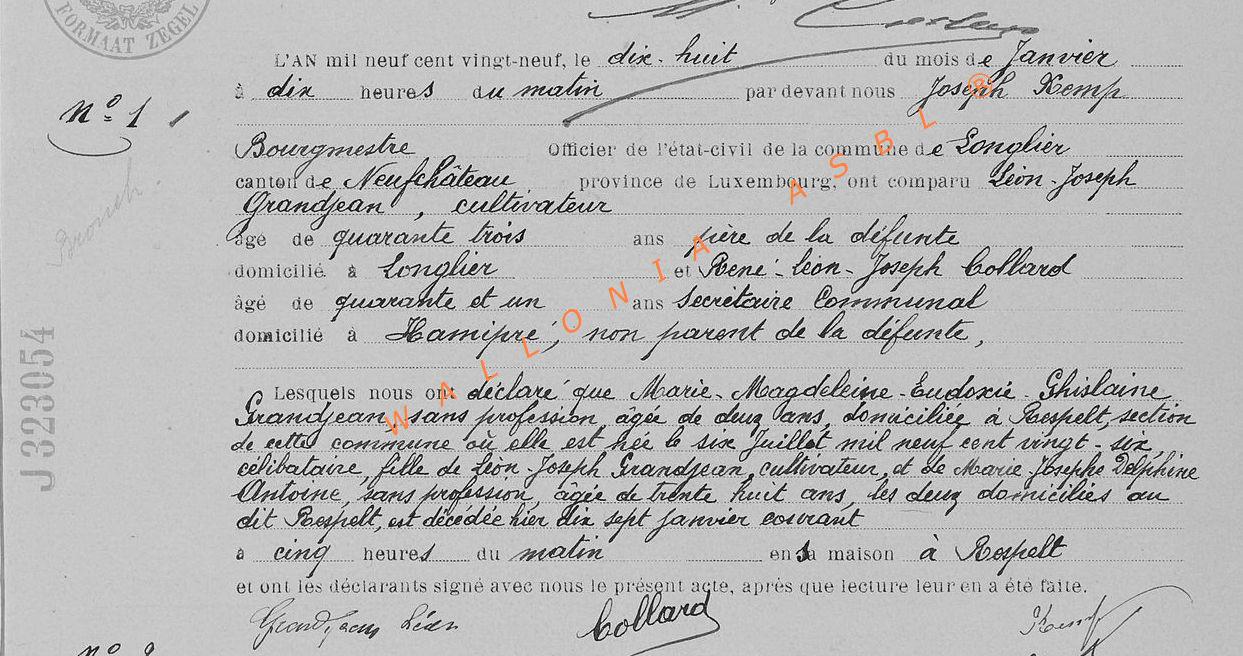 FORMAAT ZEGEL
L'AN mil neuf cent vingt-neuf, le dix-huit du mois de Janvier
à dix heures du matin par devant nous Joseph Kemp
N° 1
Bourgmestre Officier de l'état-civil de la commune de Longlier
canton de Neufchâteau, province de Luxembourg, ont comparu Léon-Joseph
Grandjean, cultivateur
âgé de quarante trois ans père de la défunte
domicilié à Longlier et René-Léon-Joseph Collard
âgé de quarante et un ans Secrétaire Communal
domicilié à Hamipré, non parent de la défunte,
Lesquels nous ont déclaré que Marie-Magdeleine-Eudoxie-Ghislaine
Grandjean, sans profession, âgée de deux ans, domiciliée à Respelt, section
de cette commune où elle est née le six Juillet mil neuf cent vingt-six,
célibataire, fille de Léon-Joseph Grandjean, cultivateur, et de Marie-Josephe Delphine
Antoine, sans profession, âgée de trente huit ans, les deux domiciliés au
dit Respelt, est décédée hier dix sept janvier courant
à cinq heures du matin en sa maison à Respelt
et ont les déclarants signé avec nous le présent acte, après que lecture leur en a été faite.
Grandjean Léon Collard Kemp
J 323054
WALLONIA ASBL ®